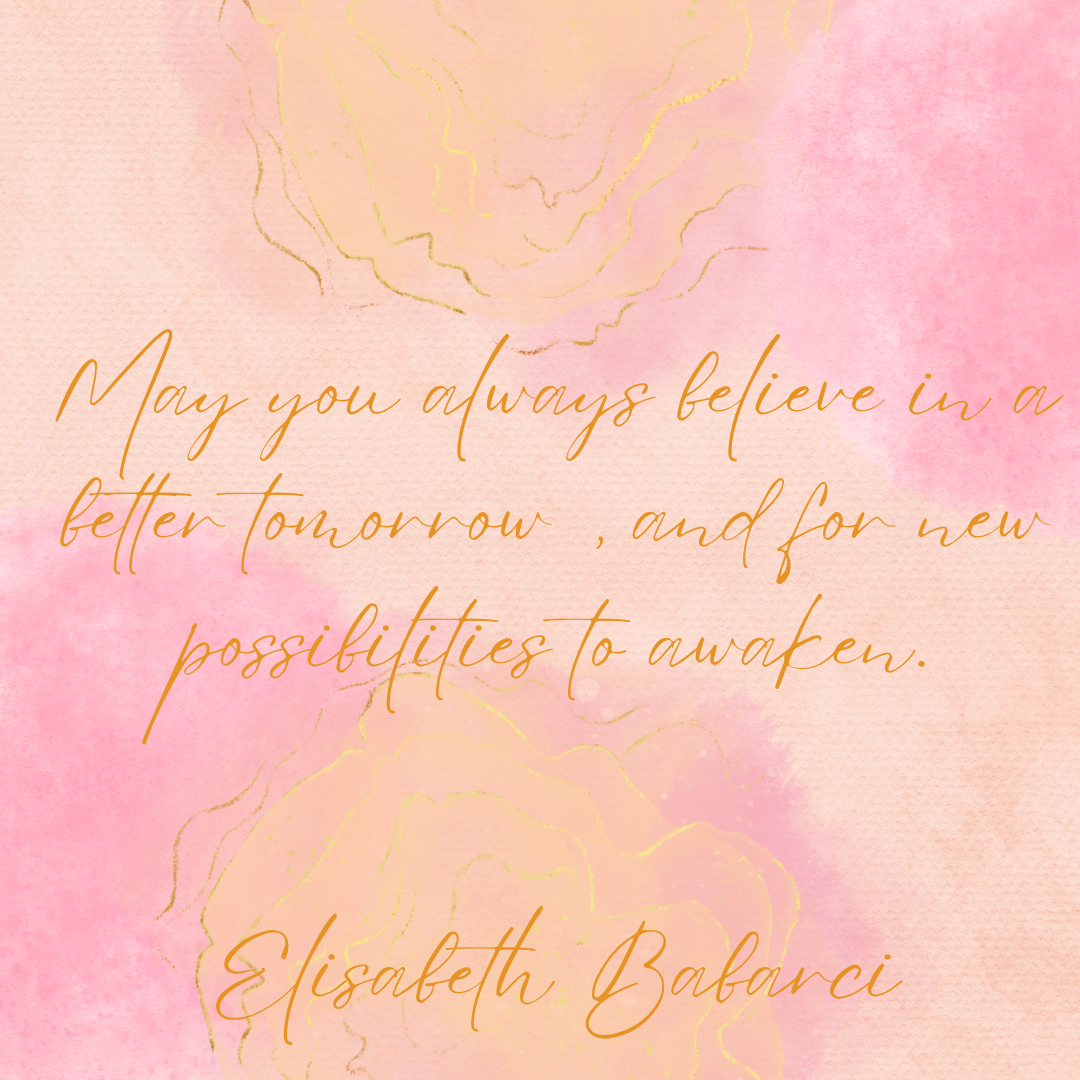 May you always believe in a
better tomorrow , and for new
possibilities to awaken.
Elisabeth Babarci